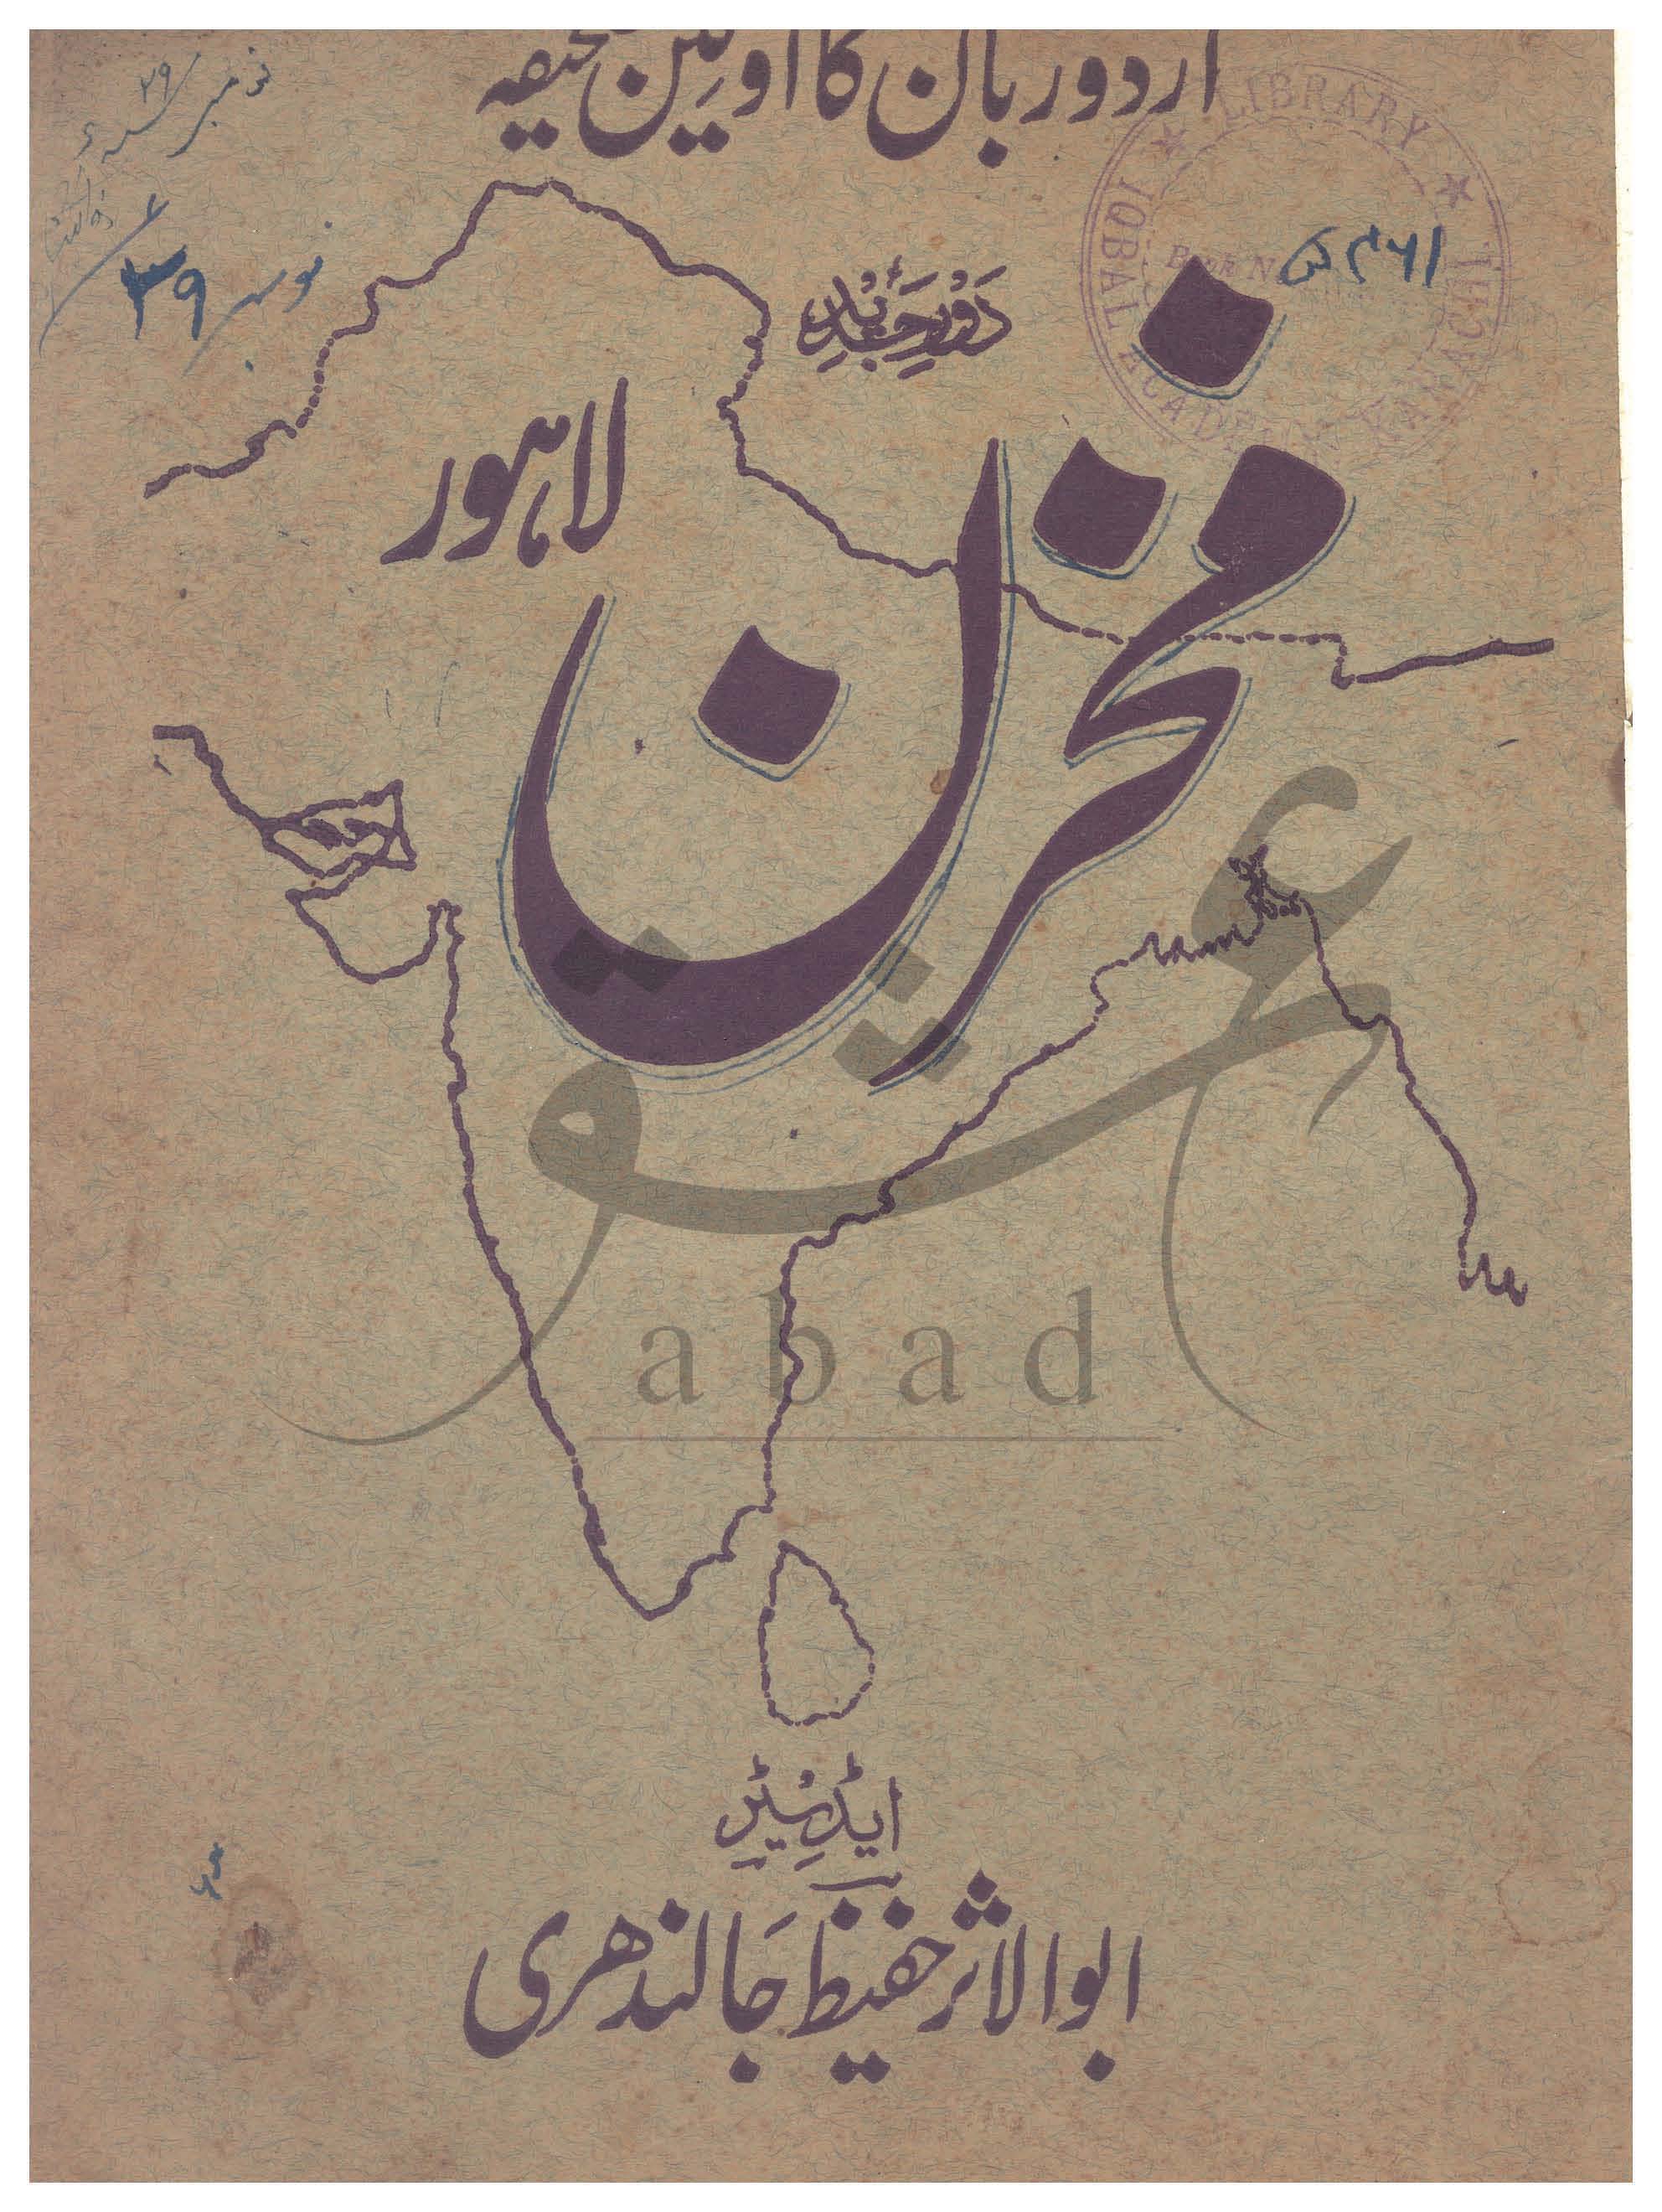 اردو زبان کا اولین صحیفہ
نومبر ۲۹
نومبر ۲۹
LIBRARY
IQBAL ACADEMY KARACHI
Book N
دَورِ جَدید
لاہور
مخزن
عو
abad
ایڈیٹر
ابوالاثر حفیظ جالندھری